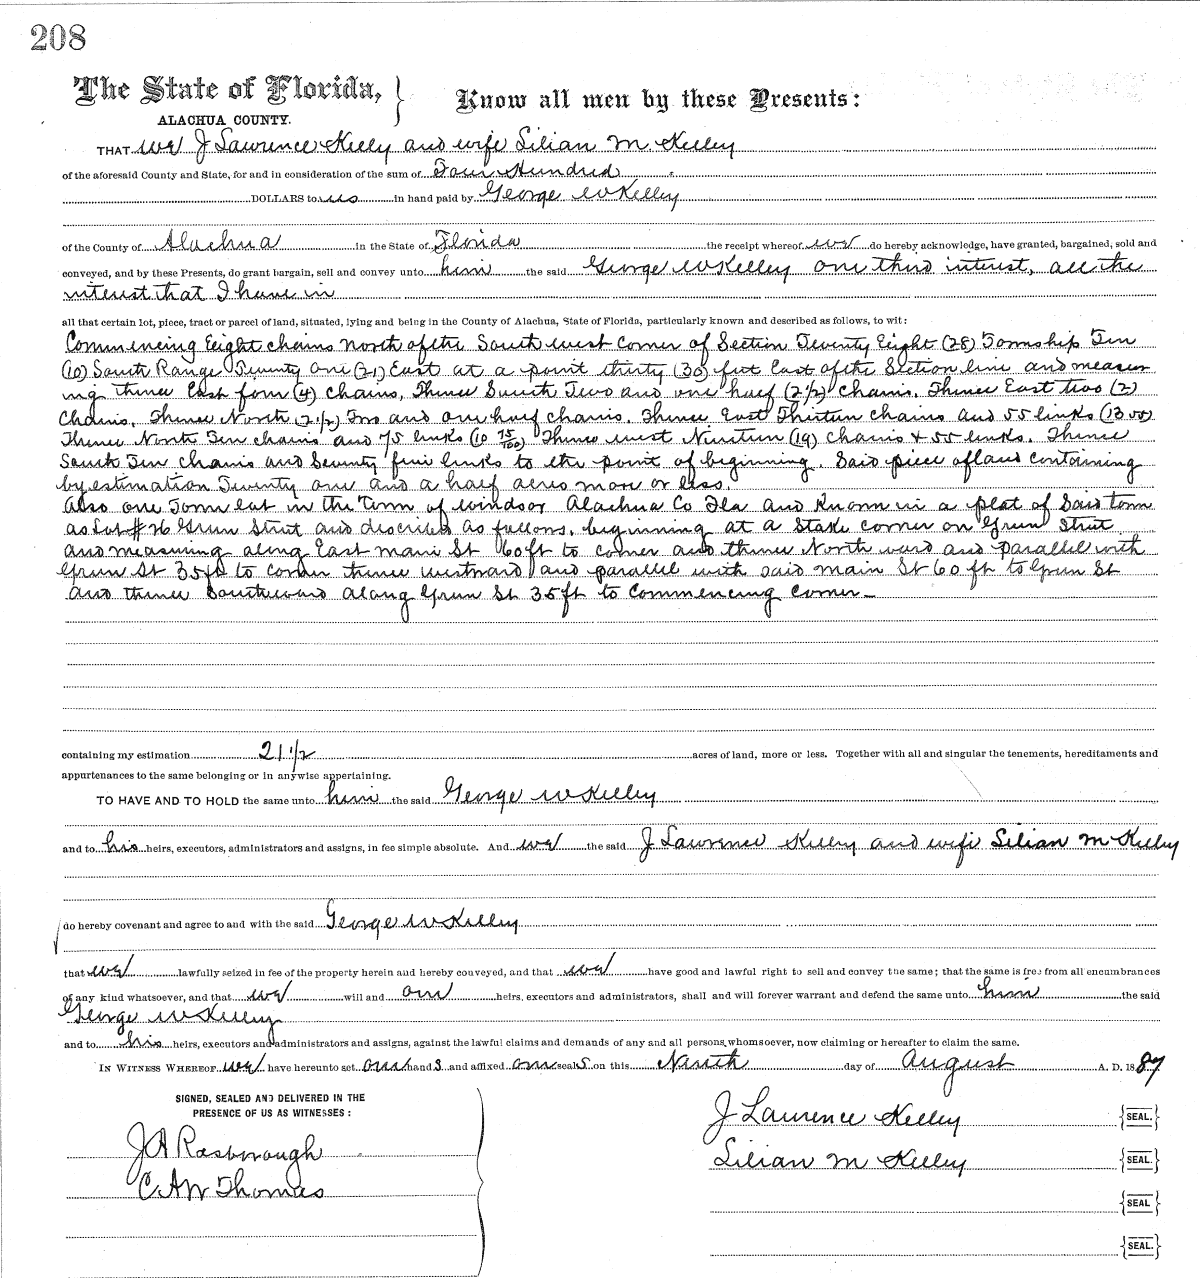 208
The State of Florida, } Know all men by these Presents:
ALACHUA COUNTY.
THAT we J Lawrence Kelley and wife Lilian M. Kelley
of the aforesaid County and State, for and in consideration of the sum of Four Hundred
DOLLARS to us in hand paid by George W Kelley
of the County of Alachua in the State of Florida the receipt whereof we do hereby acknowledge, have granted, bargained, sold and
conveyed, and by these Presents, do grant bargain, sell and convey unto him the said George W Kelley one third interest, all the
interest that I have in
all that certain lot, piece, tract or parcel of land, situated, lying and being in the County of Alachua, State of Florida, particularly known and described as follows, to wit:
Commencing Eight chains North of the South west corner of Section Twenty Eight (28) Township Ten
(10) South Range Twenty one (21) East at a point thirty (30) feet East of the Section line and measur
ing thence East four (4) chains, Thence South Two and one half (2 1/2) chains. Thence East two (2)
Chains. Thence North (2 1/2) Two and one half chains. Thence East Thirteen chains and 55 links (13 55)
Thence North Ten chains and 75 links (10 75/100) Thence west Nineteen (19) chains & 55 links. Thence
South Ten chains and Seventy five links to the point of beginning. Said piece of land containing
by estimation Twenty one and a half acres more or less.
Also one Town lot in the town of Windsor Alachua Co Fla and Known in a plat of Said town
as Lot # 26 Green Street and described as follows. beginning at a Stake corner on Green Street
and measuring along East main St 60 ft to corner and thence North ward and parallel with
Green St 35 ft to corner thence westward and parallel with said main St 60 ft to Green St
and thence Southward along Green St 35 ft to Commencing corner—
containing my estimation 21 1/2 acres of land, more or less. Together with all and singular the tenements, hereditaments and
appurtenances to the same belonging or in anywise appertaining.
TO HAVE AND TO HOLD the same unto him the said George W Kelley
and to his heirs, executors, administrators and assigns, in fee simple absolute. And we the said J Lawrence Kelley and wife Lilian M Kelley
do hereby covenant and agree to and with the said George W Kelley
that we lawfully seized in fee of the property herein and hereby conveyed, and that we have good and lawful right to sell and convey the same; that the same is free from all encumbrances
of any kind whatsoever, and that we will and our heirs, executors and administrators, shall and will forever warrant and defend the same unto him the said
George W Kelley
and to his heirs, executors and administrators and assigns, against the lawful claims and demands of any and all persons whomsoever, now claiming or hereafter to claim the same.
IN WITNESS WHEREOF we have hereunto set our hands and affixed our seals on this Ninth day of August A. D. 1887
SIGNED, SEALED AND DELIVERED IN THE
PRESENCE OF US AS WITNESSES:
J Lawrence Kelley {SEAL.}
J A Rosborough
Lilian M Kelley {SEAL.}
C A W Thomas
{SEAL}
{SEAL.}